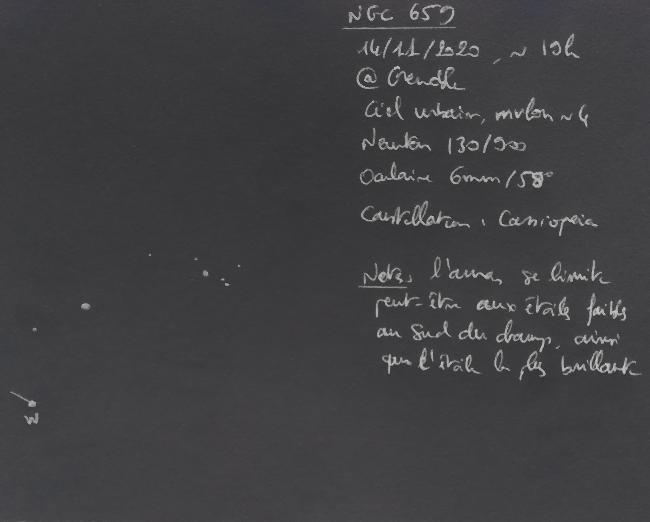 NGC 659
14/11/2020, ~ 19h
@ Grenoble
Ciel urbain, mvlon ~4
Newton 130/900
Oculaire 6mm/58°
Constellation : Cassiopeia
Note : l'amas se limite
peut être aux étoiles faibles
au sud du champ, ainsi
que l'étoile la plus brillante
W